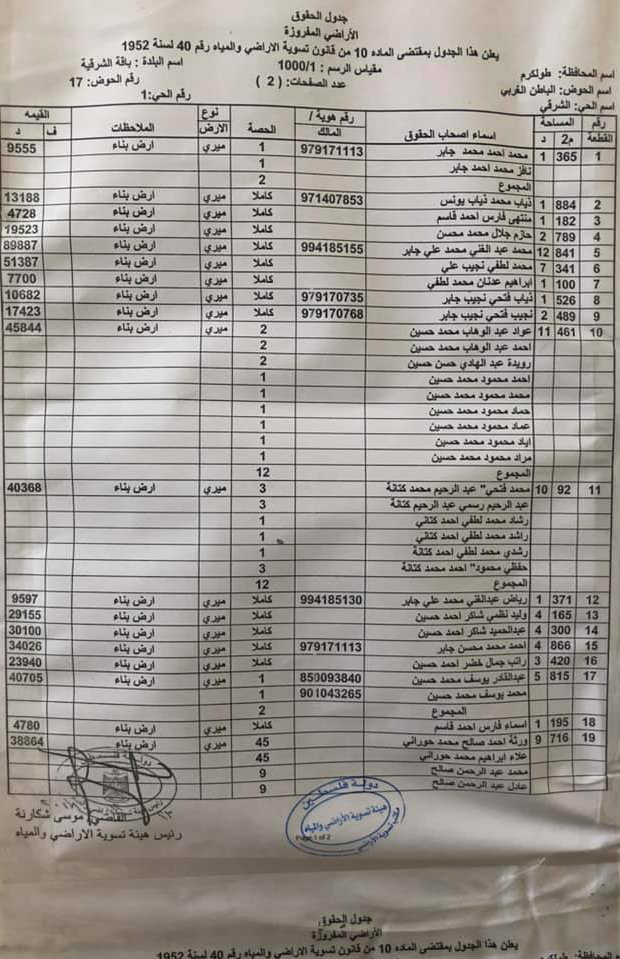 جدول الحقوق
الأراضي المفروزة
يعلن هذا الجدول بمقتضى الماده 10 من قانون تسوية الاراضي والمياه رقم 40 لسنة 1952
اسم المحافظة: طولكرم مقياس الرسم : 1000/1 اسم البلدة : باقة الشرقية
اسم الحوض: الباطن الغربي عدد الصفحات: ( 2 ) رقم الحوض: 17
اسم الحي: الشرقي رقم الحي:1
رقم القطعة المساحة م2 د اسماء اصحاب الحقوق رقم هوية / المالك الحصة نوع الارض الملاحظات القيمه ف د
1 365 1 محمد احمد محمد جابر 979171113 1 ميري ارض بناء 9555
نافز محمد احمد جابر 1
المجموع 2
2 884 1 ذياب محمد ذياب يونس 971407853 كاملا ميري ارض بناء 13188
3 182 1 منتهى فارس احمد قاسم كاملا ميري ارض بناء 4728
4 789 2 حازم جلال محمد محسن كاملا ميري ارض بناء 19523
5 841 12 محمد عبد الغني محمد علي جابر 994185155 كاملا ميري ارض بناء 89887
6 341 7 محمد لطفي نجيب علي كاملا ميري ارض بناء 51387
7 100 1 ابراهيم عدنان محمد لطفي كاملا ميري ارض بناء 7700
8 526 1 ذياب فتحي نجيب جابر 979170735 كاملا ميري ارض بناء 10682
9 489 2 نجيب فتحي نجيب جابر 979170768 كاملا ميري ارض بناء 17423
10 461 11 عواد عبد الوهاب محمد حسين 2 ميري ارض بناء 45844
احمد عبد الوهاب محمد حسين 2
رويدة عبد الهادي حسن حسين 2
احمد محمود محمد حسين 1
محمد محمود محمد حسين 1
حماد محمود محمد حسين 1
عماد محمود محمد حسين 1
اياد محمود محمد حسين 1
مراد محمود محمد حسين 1
المجموع 12
11 92 10 محمد فتحي" عبد الرحيم محمد كتانة 3 ميري ارض بناء 40368
عبد الرحيم رسمي عبد الرحيم كتانة 3
رشاد محمد لطفي احمد كتاني 1
راشد محمد لطفي احمد كتاني 1
رشدي محمد لطفي احمد كتانة 1
حفظي محمود" احمد محمد كتانة 3
المجموع 12
12 371 1 رياض عبدالغني محمد علي جابر 994185130 كاملا ميري ارض بناء 9597
13 165 4 وليد نظمي شاكر احمد حسين كاملا ميري ارض بناء 29155
14 300 4 عبدالحميد شاكر احمد حسين كاملا ميري ارض بناء 30100
15 866 4 احمد محمد محسن جابر 979171113 كاملا ميري ارض بناء 34026
16 420 3 راتب جمال خضر احمد حسين كاملا ميري ارض بناء 23940
17 815 5 عبدالقادر يوسف محمد حسين 850093840 1 ميري ارض بناء 40705
محمد يوسف محمد حسين 901043265 1
المجموع 2
18 195 1 اسماء فارس احمد قاسم كاملا ميري ارض بناء 4780
19 716 9 ورثة احمد صالح محمد حوراني 45 ميري ارض بناء 38864
علاء ابراهيم محمد حوراني 45
محمد عبد الرحمن صالح 9
عادل عبد الرحمن صالح 9
القاضي/ موسى شكارنة
رئيس هيئة تسوية الاراضي والمياه
دولة فلسطين
هيئة تسوية الأراضي والمياه
Page 1 of 2
جدول الحقوق
الأراضي المفروزة
يعلن هذا الجدول بمقتضى الماده 10 من قانون تسوية الاراضي والمياه رقم 40 لسنة 1952
المحافظة: طولكرم